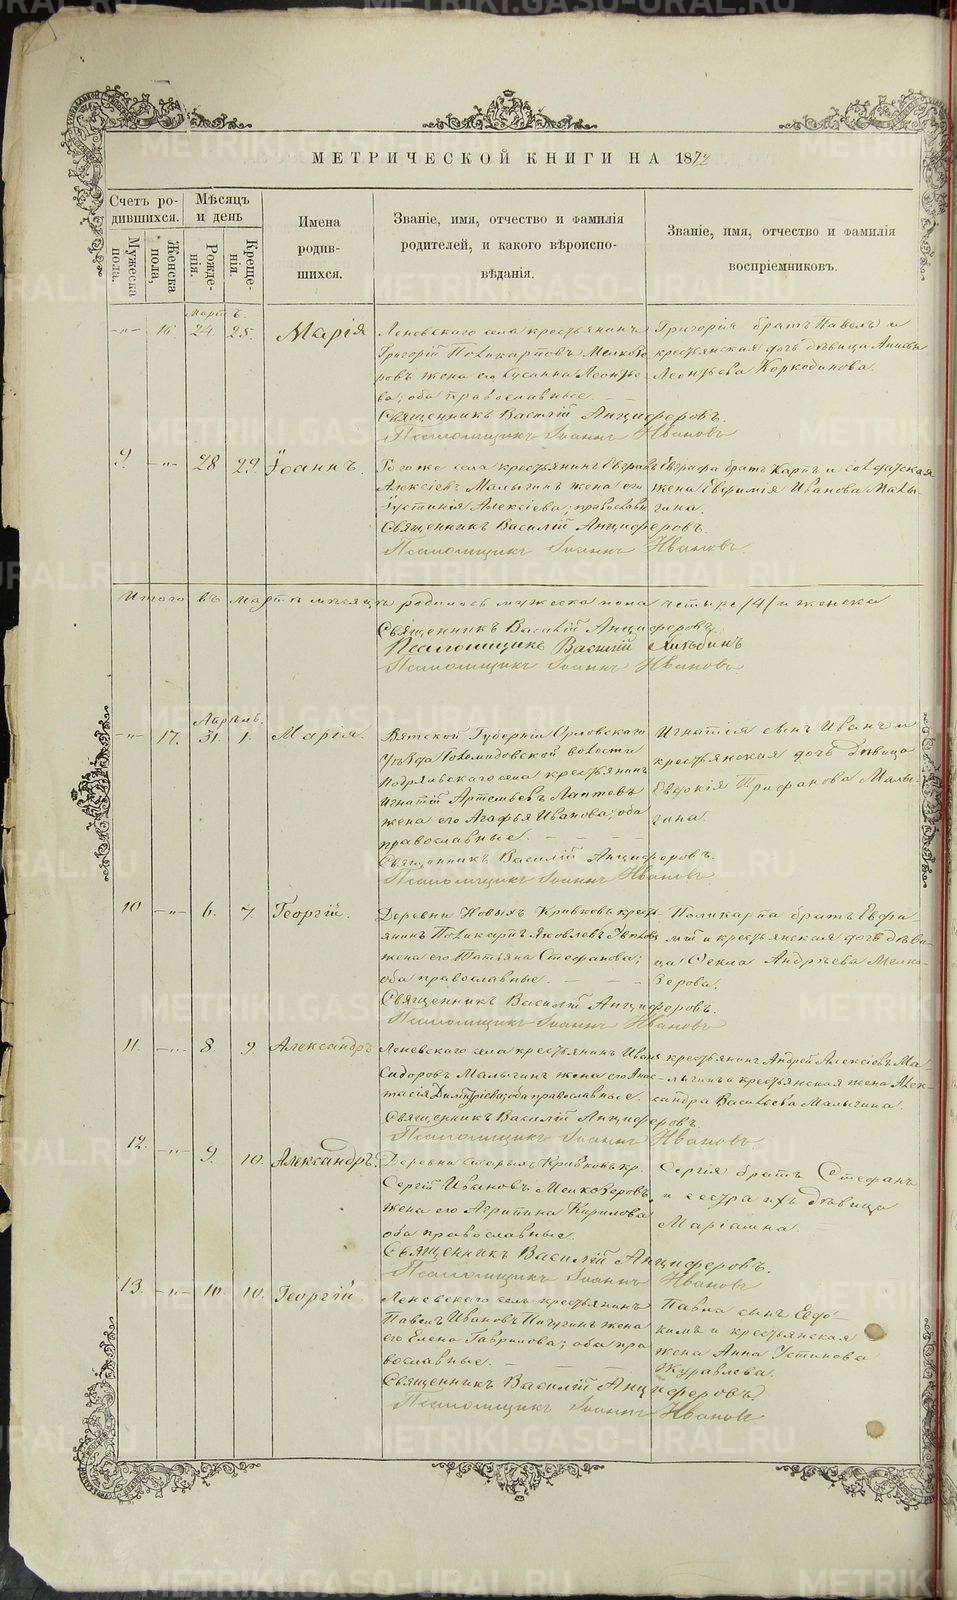 МЕТРИЧЕСКОЙ КНИГИ НА 1872
Счетъ ро-
дившихся.
Мужеска
пола.
Женска
пола,
Мѣсяцъ
и день
Рожде-
нія.
Креще-
нія.
Имена
родив-
шихся.
Званіе, имя, отчество и фамилія
родителей, и какого вѣроиспо-
вѣданія.
Званіе, имя, отчество и фамилія
воспріемниковъ.
Мартъ.
16 24 25. Марія
Леневскаго села крестьянинъ
Григорій Поликарповъ Мелкозе
ровъ жена его Сусанна Леонтье
ва; оба православные.
Священникъ Василій Анциферовъ.
Псаломщикъ Іоаннъ Ивановъ
Григорія братъ Павелъ и
крестьянская дочь дѣвица
Леонтьева Коркодинова.
9. 28 29 Іоаннъ.
Того же села крестьянинъ Евграфъ
Алексіевъ Малыгинъ жена его
Іустинія Алексіева; православн
Священникъ Василій Анциферовъ
Псаломщикъ Іоаннъ Ивановъ.
Евграфа братъ Карпъ и солдатская
жена Евфимія Иванова Малы-
гина.
Итого въ Мартѣ мѣсяцѣ родилось мужеска пола четыре /4/ и женска
Священникъ Василій Анциферовъ.
Псаломщикъ Василій
Псаломщикъ Іоаннъ Ивановъ.
Апрѣль.
17. 31. 1. Марія.
Вятской Губерніи Орловскаго
Уѣзда волости
села крестьянинъ
Игнатій Артемьевъ Лаптевъ
жена его Агафья Иванова; оба
православные.
Священникъ Василій Анциферовъ.
Псаломщикъ Іоаннъ Ивановъ
Игнатія сынъ Иванъ и
крестьянская дочь дѣвица
Евдокія Трифанова Малы-
гина.
10 6. 7. Георгій.
Деревни Новыхъ Кривковъ крест
янинъ Поликарпъ Яковлевъ
жена его Татьяна Стефанова;
оба православные.
Священникъ Василій Анциферовъ.
Псаломщикъ Іоаннъ Ивановъ
Поликарпа братъ Евфи-
мій и крестьянская дочь дѣви-
ца Ѳекла Андреева Мелко-
зерова.
11. 8. 9. Александръ
Леневскаго села крестьянинъ Иванъ
Сидоровъ Малыгинъ жена его Анас-
тасія Димитріева; оба православные.
Священникъ Василій Анциферовъ.
Псаломщикъ Іоаннъ Ивановъ
крестьянинъ Андрей Алексіевъ Ма-
лыгинъ и крестьянская жена Алек-
сандра Васильева Малыгина.
12. 9. 10. Александръ.
Деревни Старыхъ Кривковъ кр.
Сергій Ивановъ Мелкозеровъ,
жена его Агрипина Кирилова
оба православные.
Священникъ Василій Анциферовъ.
Псаломщикъ Іоаннъ Ивановъ
Сергія братъ Стефанъ
и сестра ихъ дѣвица
Маріамна.
13. 10. 10. Георгій
Леневскаго села крестьянинъ
Павелъ Ивановъ Пичугинъ жена
его Елена Гаврилова; оба пра
вославные.
Священникъ Василій Анциферовъ.
Псаломщикъ Іоаннъ Ивановъ
Павла сынъ Евдо-
кимъ и крестьянская
жена Анна Устинова
Журавлева.
METRIKI.GASO-URAL.RU